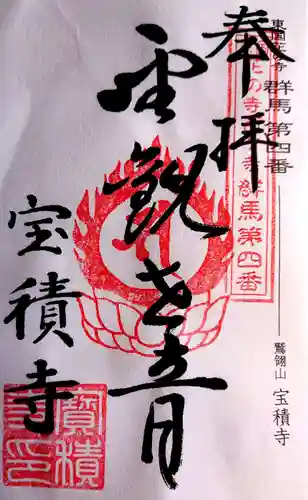 東国花の寺
群馬 第四番
鷲翎山 宝積寺
花の寺
群馬第四番
奉拝
聖観世音
宝積寺
寶積寺印